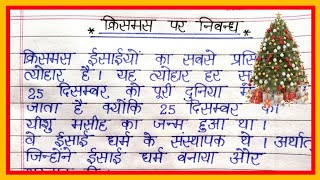 * क्रिसमस पर निबन्ध *
क्रिसमस ईसाईयों का सबसे
त्योहार है। यह त्योहार हर
25 दिसम्बर को पूरी दुनिया
जाता है क्योंकि 25 दिसम्बर को
यीशु मसीह का जन्म हुआ था।
वे ईसाई धर्म के संस्थापक थे। अर्थात्
जिन्होंने ईसाई धर्म बनाया और